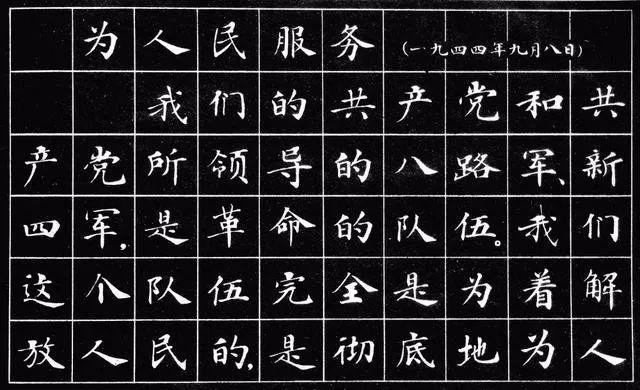 为人民服务 (一九四四年九月八日)
我们的共产党和共
产党所领导的八路军、新
四军，是革命的队伍。我们
这个队伍完全是为着解
放人民的，是彻底地为人